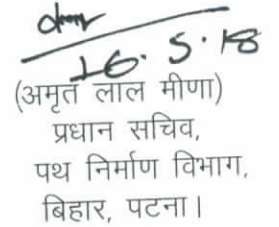 16.5.18
(अमृत लाल मीणा)
प्रधान सचिव,
पथ निर्माण विभाग,
बिहार, पटना।